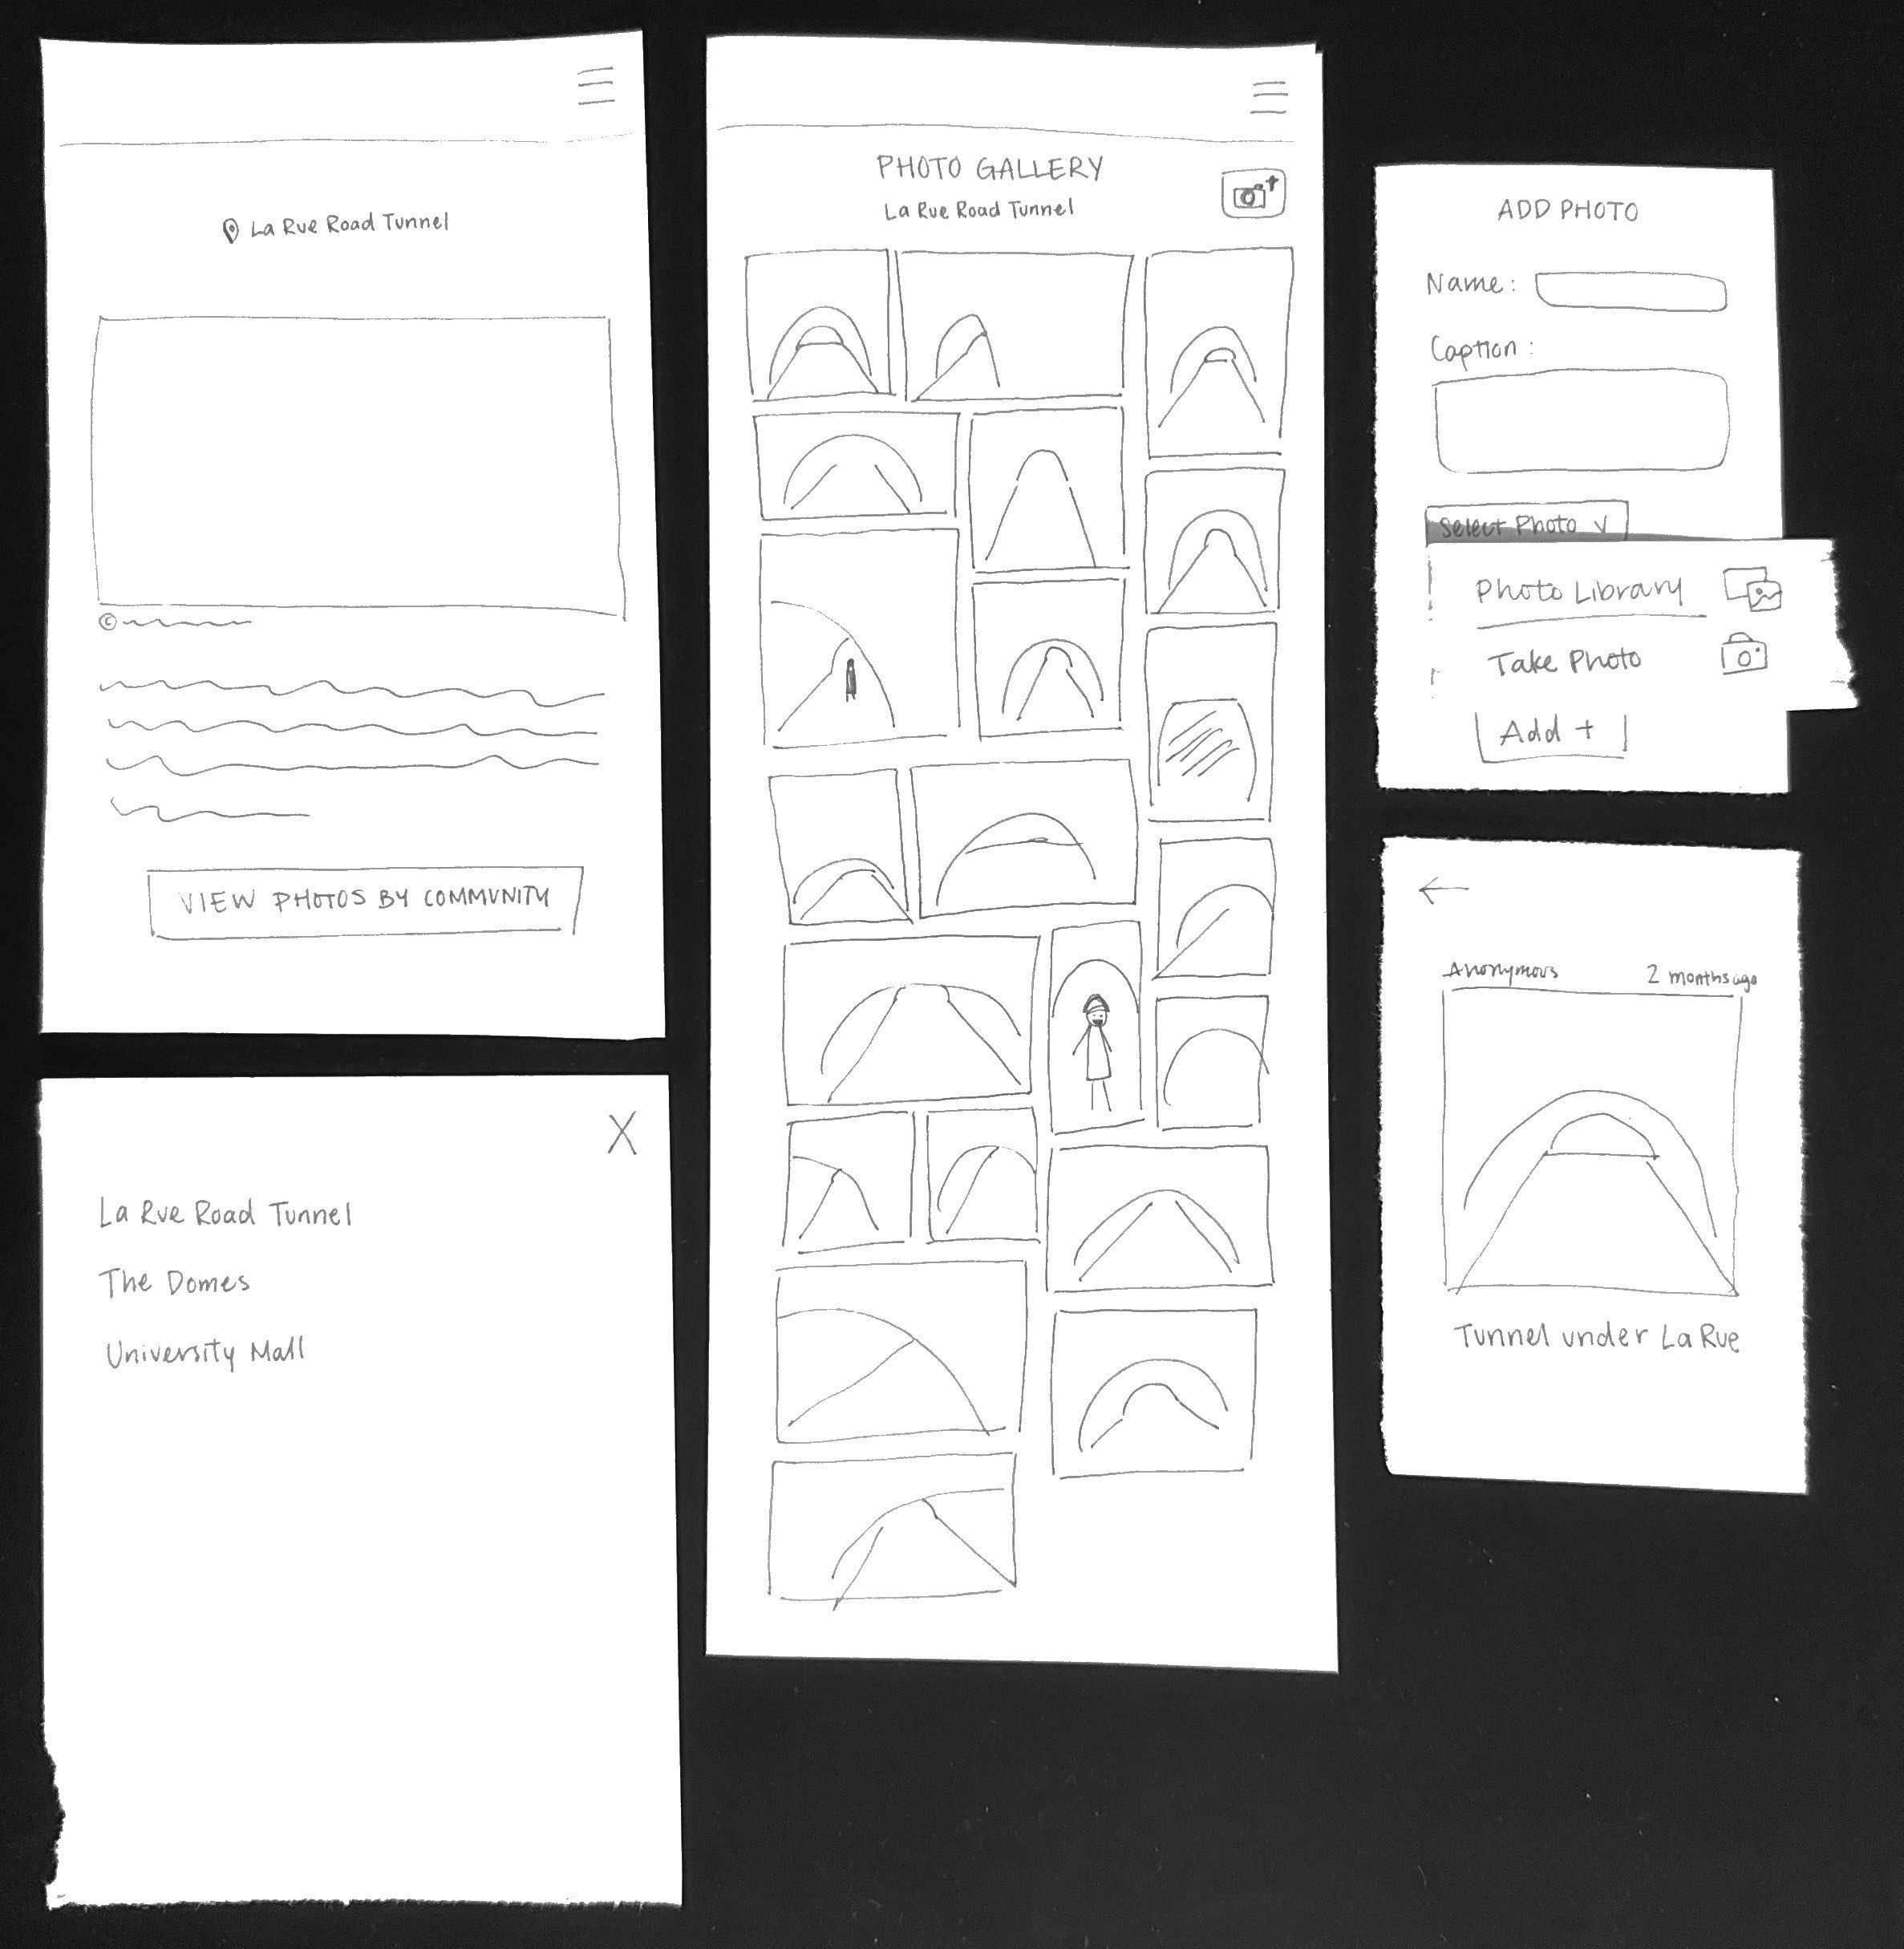 La Rue Road Tunnel
©
VIEW PHOTOS BY COMMUNITY
X
La Rue Road Tunnel
The Domes
University Mall
PHOTO GALLERY
La Rue Road Tunnel
ADD PHOTO
Name:
Caption:
Select Photo V
Photo Library
Take Photo
Add +
Anonymous 2 months ago
Tunnel under La Rue